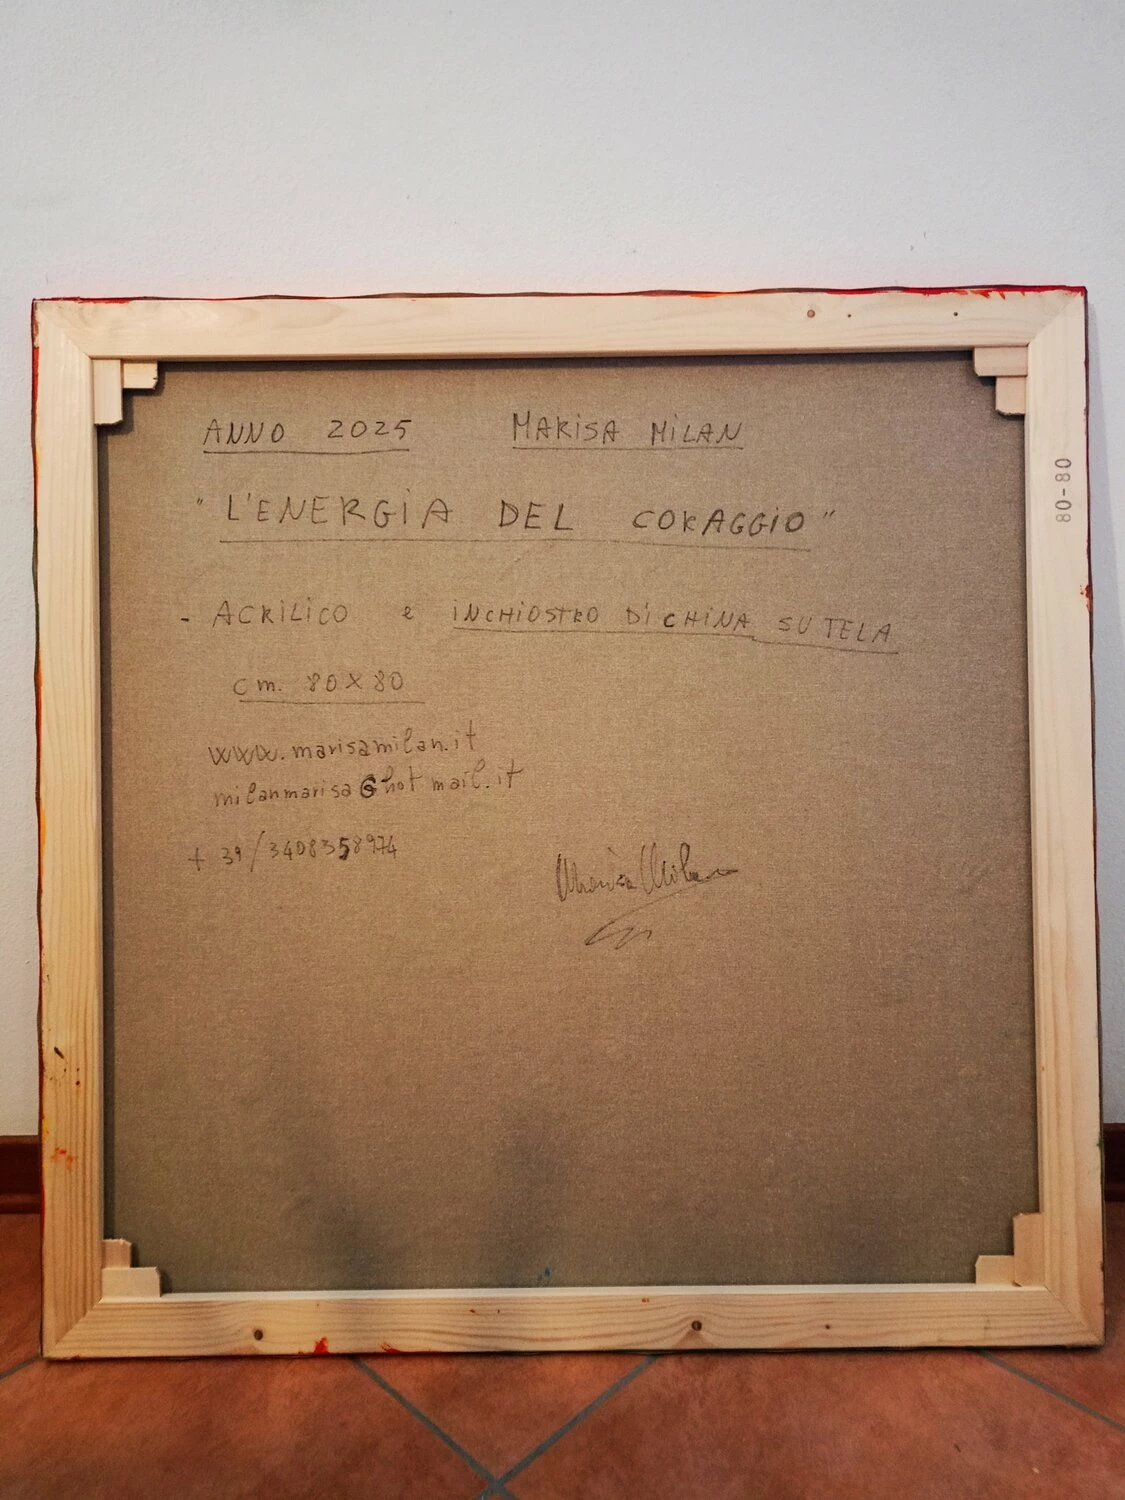 ANNO 2025 MARISA MILAN
"L'ENERGIA DEL CORAGGIO"
- ACRILICO e INCHIOSTRO DI CHINA SU TELA
cm. 80X80
www.marisamilan.it
milanmarisa@hotmail.it
+ 39/3408358974
Marisa Milan
80-80